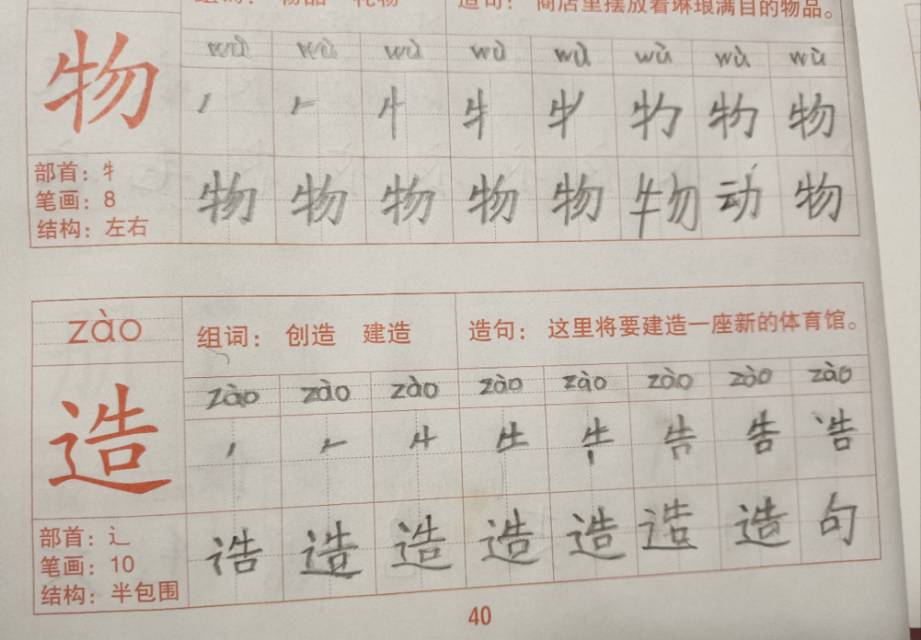 组词： 物品 礼物 造句： 商店里摆放着琳琅满目的物品。
wù wù wù wù wù wù wù wù
物
牛 物 物
部首：牜 物 物 物 物 物 牛勿 动 物
笔画：8
结构：左右
zào 组词： 创造 建造 造句： 这里将要建造一座新的体育馆。
zào zào zào zào zào zào zào zào
造
告 告
部首：辶 造 造 造 造 造 造 句
笔画：10
结构：半包围
40